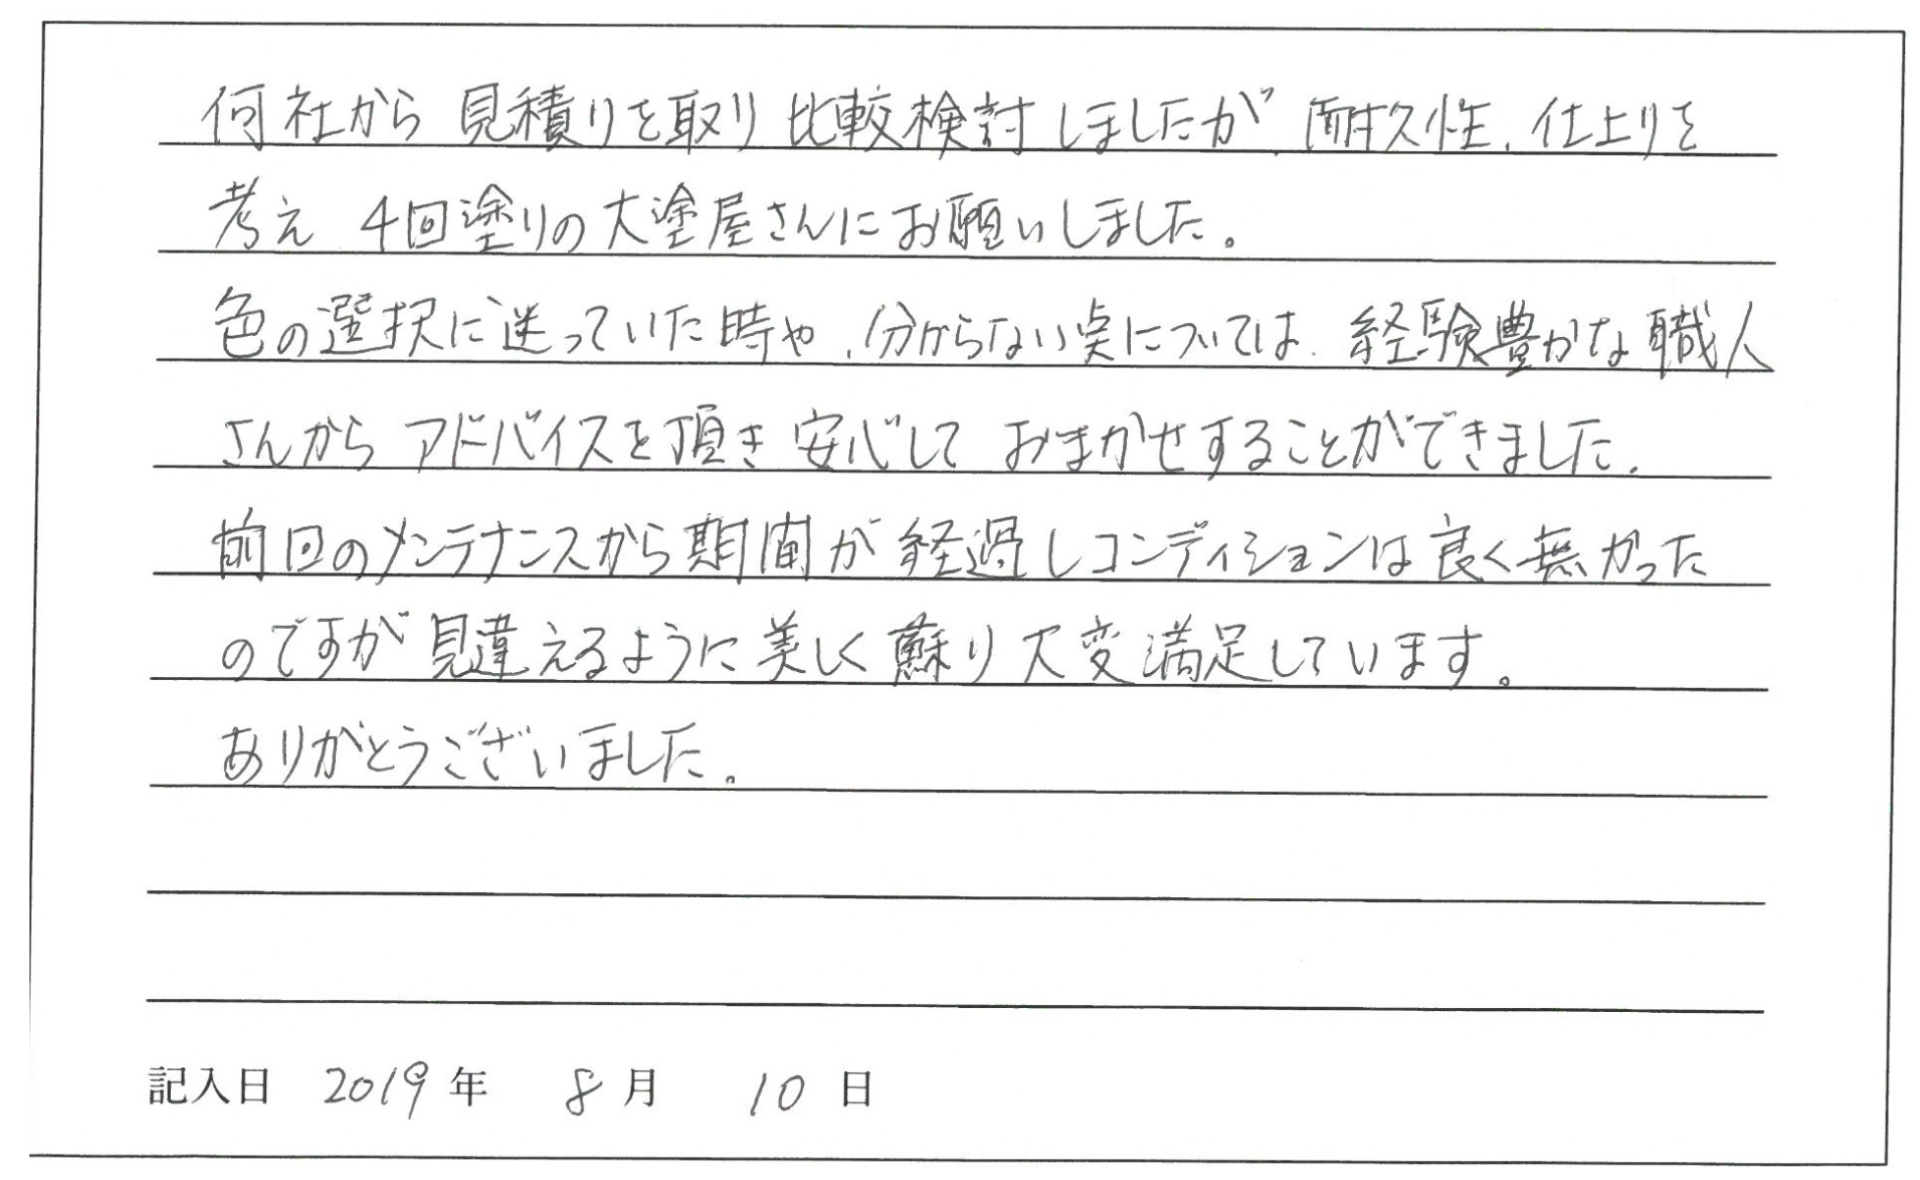 何社から見積りを取り比較検討しましたが、耐久性、仕上りを
考え 4回塗りの大塗屋さんにお願いしました。
色の選択に迷っていた時や、分からない点については、経験豊かな職人
さんからアドバイスを頂き安心しておまかせすることができました。
前回のメンテナンスから期間が経過しコンディションは良く無かった
のですが見違えるように美しく蘇り大変満足しています。
ありがとうございました。
記入日 2019年 8月 10日